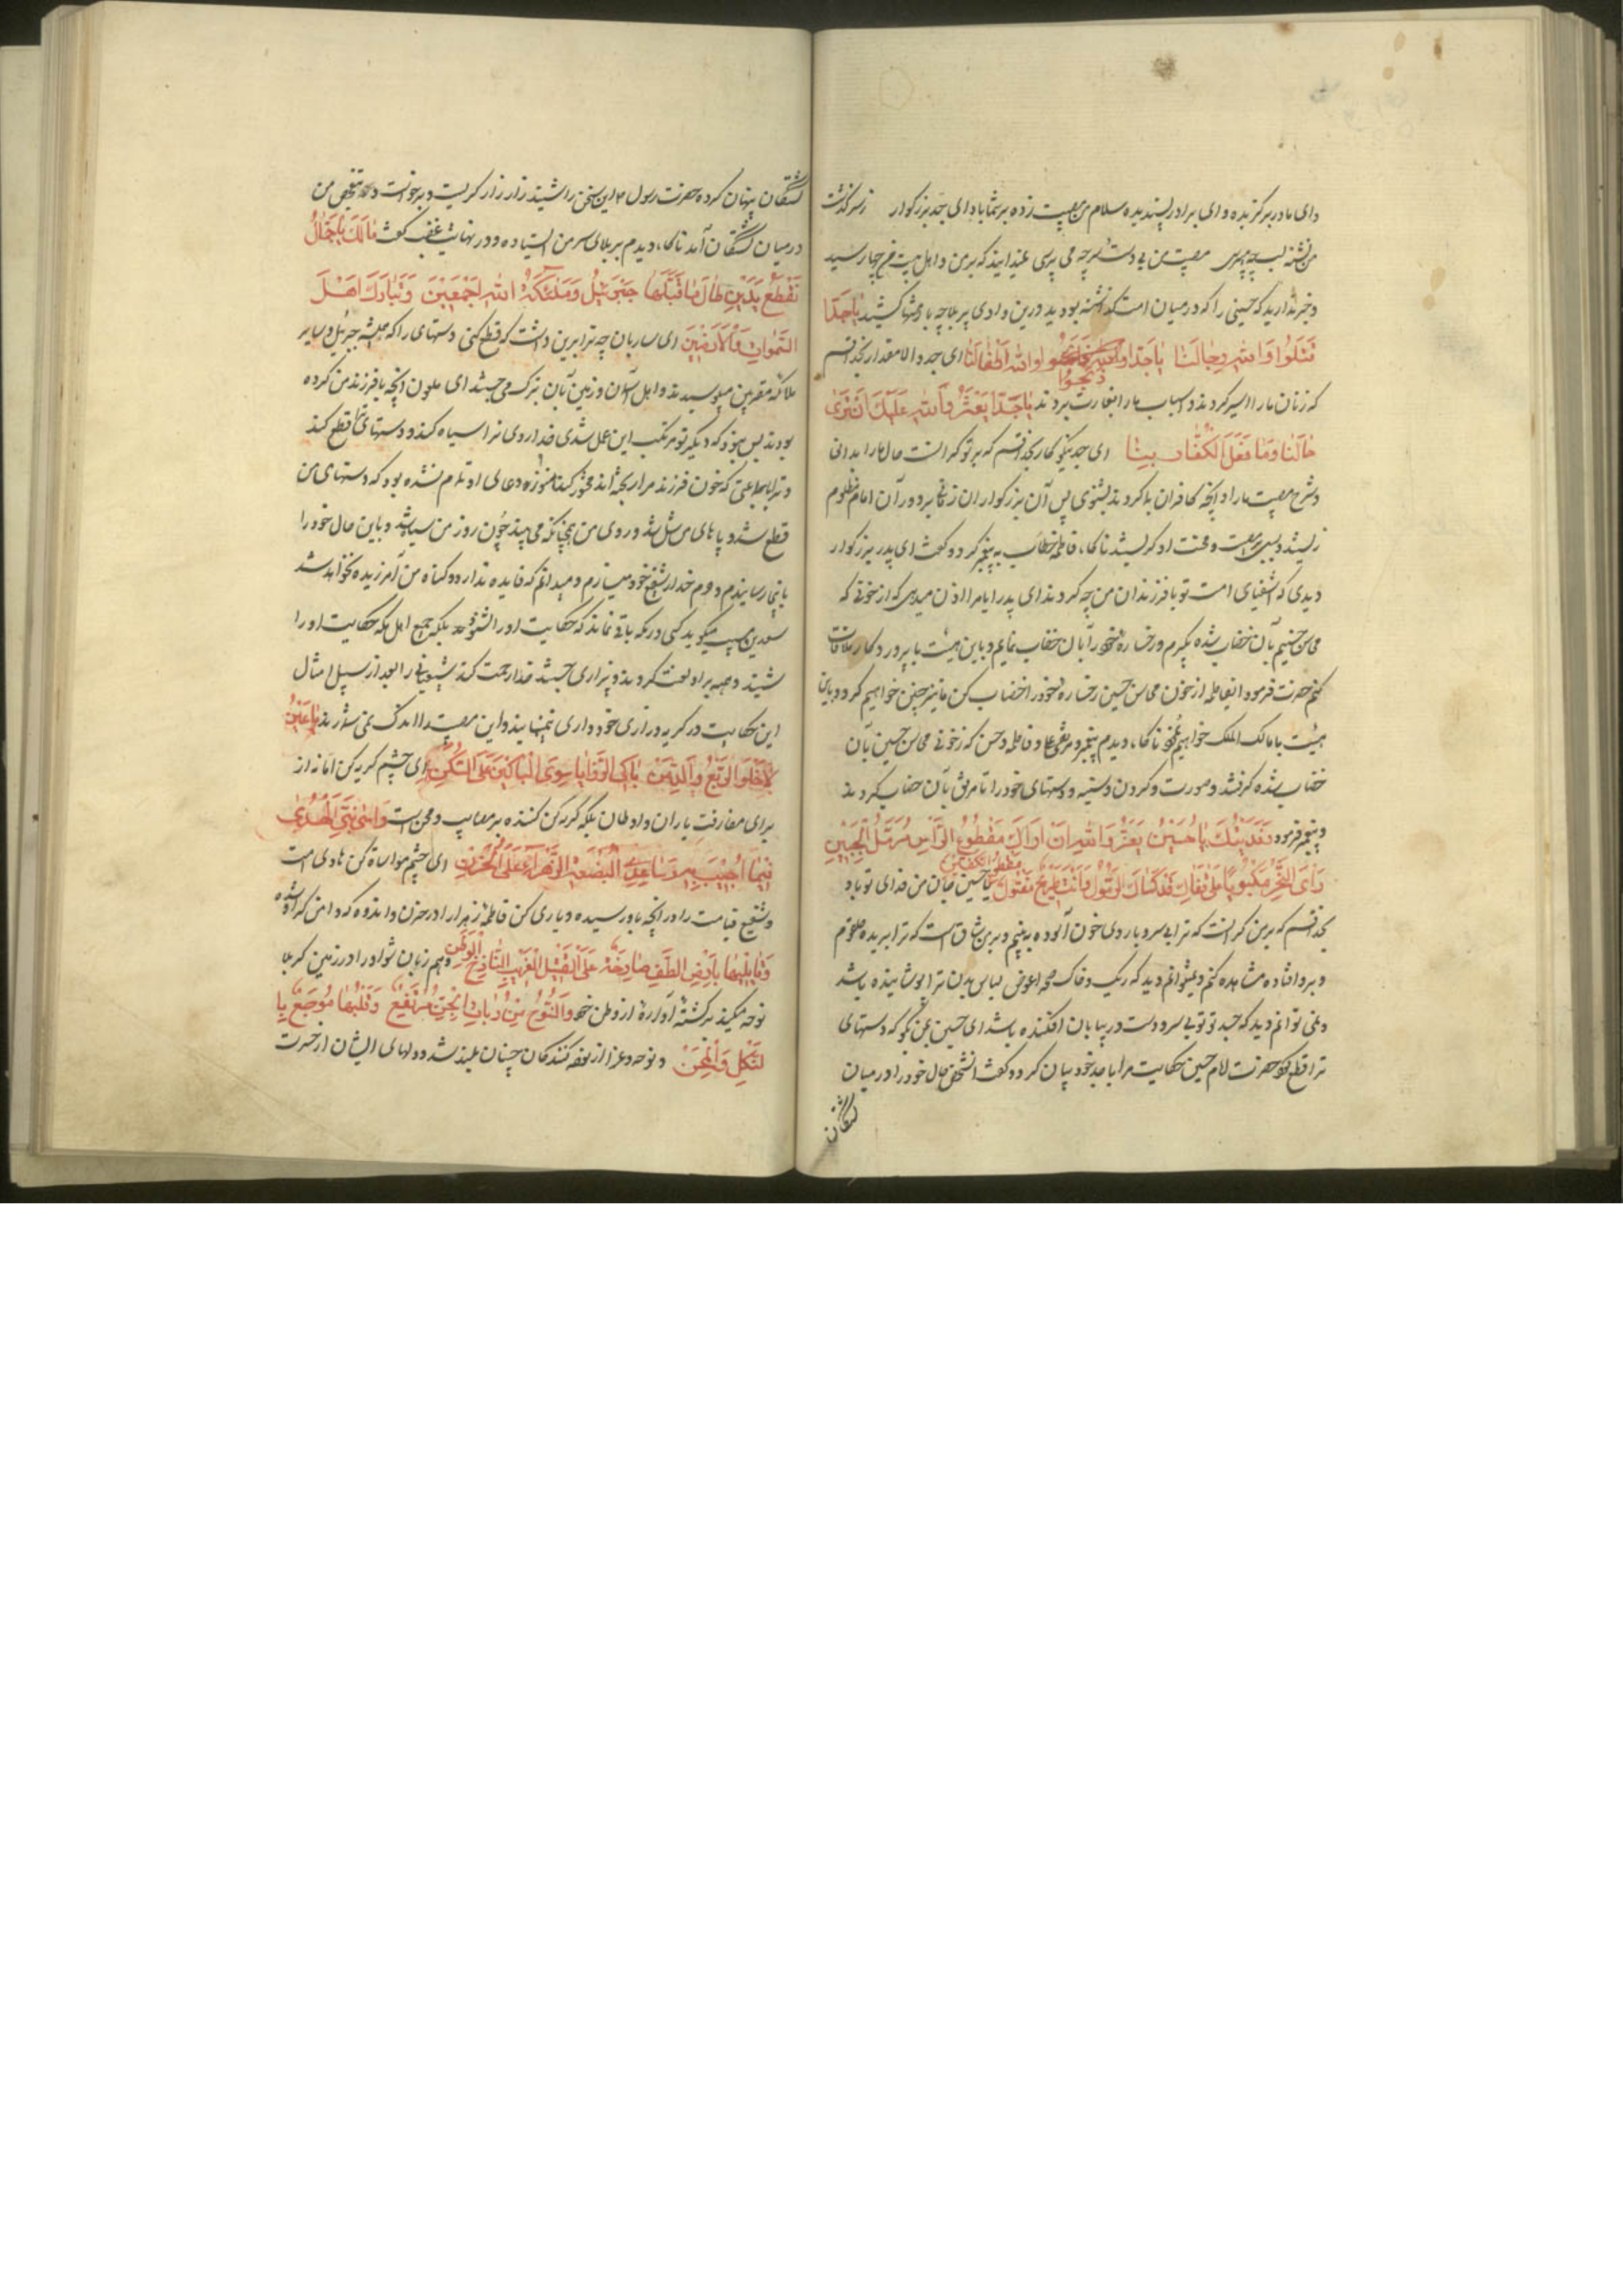 وای مادر برکزیده و ای برادر پسندیده سلام من مصیبت زده بر شما باد ای جد بزرکوار از سرکذشت
من تشنه لب چه میپرسی مصیبت من بی دست را چه می پرسی نمیدانید که بر من و اهل بیت من چها رسید
و خبر ندارید که حسینی را که در میان امت کذاشته بودید درین وادی پر بلا چه محنتها کشید یا جداه
قتلوا والله رجالنا یا جداه ذبحوا والله اطفالنا ای جد والا مقدار بخدا قسم
که زنان ما را اسیر کردند و اسباب ما را بغارت بردند یا جداه یعز والله علیک ان تری
حالنا وما فعل الکفار بنا ای جد نیکو کار بخدا قسم که بر تو کرانست حال ما را بدانی
و شرح مصیبت ما را و آنچه کافران بما کردند بشنوی پس آن بزرکواران در آن امام مظلوم
و محنت او کریستند ناکاه فاطمه خطاب به پیغمبر کرد و کفت ای پدر بزرکوار
دیدی که اشقیای امت تو با فرزندان من چه کردند ای پدر ایا مرا اذن میدهی که از خونی که
محاسن حسینم بآن خضاب شده بکیرم و رخساره خود را بآن خضاب نمایم و باین هیئت با پروردکار ملاقات
کنم حضرت فرمود ایفاطمه از خون محاسن حسین رخساره خود را خضاب کن ما نیز چنین خواهیم کرد و باین
هیئت با مالک الملک خواهیم ناکاه دیدم پیغمبر و مرتضی علی و فاطمه و حسن که از خونی محاسن حسین بآن
خضاب شده کرفتند و صورت و کردن و سینه و دستهای خود را تا مرفق بآن خضاب کردند
و پیغمبر فرمود فدیتک یا حسین یعز والله ان اراک مقطوع الراس مرمل الجبین
دامی النحر مکبوبا علی قفاک قد کساک الرمول وانت طریح مقتول مقطوع الکفین یا حسین جان من فدای تو باد
بخدا قسم که بر من کرانست که ترا بی سر و با روی خون آلوده به بینم و بر من شاق است که ترا بریده حلقوم
و بر رو افتاده مشاهده کنم و نمیتوانم دید که ریک و خاک صحرا عوض لباس بدن ترا پوشانیده باشد
و نمی توانم دید که جسد تو بی سر و دست در بیابان افکنده باشد ای حسین بمن بکو که دستهای
ترا قطع کرد حضرت امام حسین حکایت مرا با جد خود بیان کرد و کفت انشخص حال خود را در میان
کشتکان
کشتکان پنهان کرده حضرت رسول این سخن را شنید زار زار کریست و برخواست و به تفحص من
در میان کشتکان آمد ناکاه دیدم بر بالای سر من ایستاده و در نهایت غضب کفت مالک یا جمال
تقطع یدین طال ما قبلها جبرئیل وملائکة الله اجمعین وتبارک اهل
السموات والارضین ای ساربان چه ترا برین داشت که قطع کنی دستهای را که همیشه جبرئیل و سایر
ملائکه مقربین میبوسیدند و اهل آسمان و زمین بآن تبرک می جستند ای ملعون آنچه با فرزند من کرده
بودند بس نبود که دیکر تو مرتکب این عمل شدی خدا روی ترا سیاه کند و دستهای ترا قطع کند
و ترا با جماعتی که خون فرزند مرا ریخته اند محشور کند هنوزه دعای او تمام نشده بود که دستهای من
قطع شد و پاهای من شل شد و روی من چنانکه می بینید چون روز من سیاه شد و باین حال خود را
باینجا رسانیدم و دوم خدا را شفیع خود میسازم و میدانم که فایده ندارد و کناه من آمرزیده نخواهد شد
سعید بن مسیب میکوید کسی در مکه باقی نماند که حکایت او را نشنود بلکه جمیع اهل مکه حکایت او را
شنیدند و همه بر او لعنت کردند و بیزاری جستند خدا رحمت کند شیعیانی را که بعد از سیل امثال
این حکایت در کریه و زاری خود داری نمینمایند و این مصیبت را اندک نمی شمرند یا عین
لا لخلو الربع والدمن بل الرزایا سوی الباکین علی السکن ای چشم کریه کن اما نه از
برای مفارقت یاران و اوطان بلکه کریه کن کننده بر مصایب و محن است واسی نبی الهدی
فیما اصیب به وساعدی البضعة الزهراء علی الحزن ای چشم مواساة کن هادی امت
و شفیع قیامت را در آنچه باو رسیده و یاری کن فاطمه زهرا را در حزن و اندوه که
وقابلیها بارض الطف صارخة علی القتیل الغریب النازح الوطن و هم زبان شو او را در زمین کربلا
نوحه میکند بر کشته آواره از وطن خود والنوح من مرتفع وقلبها موجع با
لثکل والمحن و نوحه و عزا از نوحه کنندکان چنان بلند شد و دلهای ایشان از حسرت